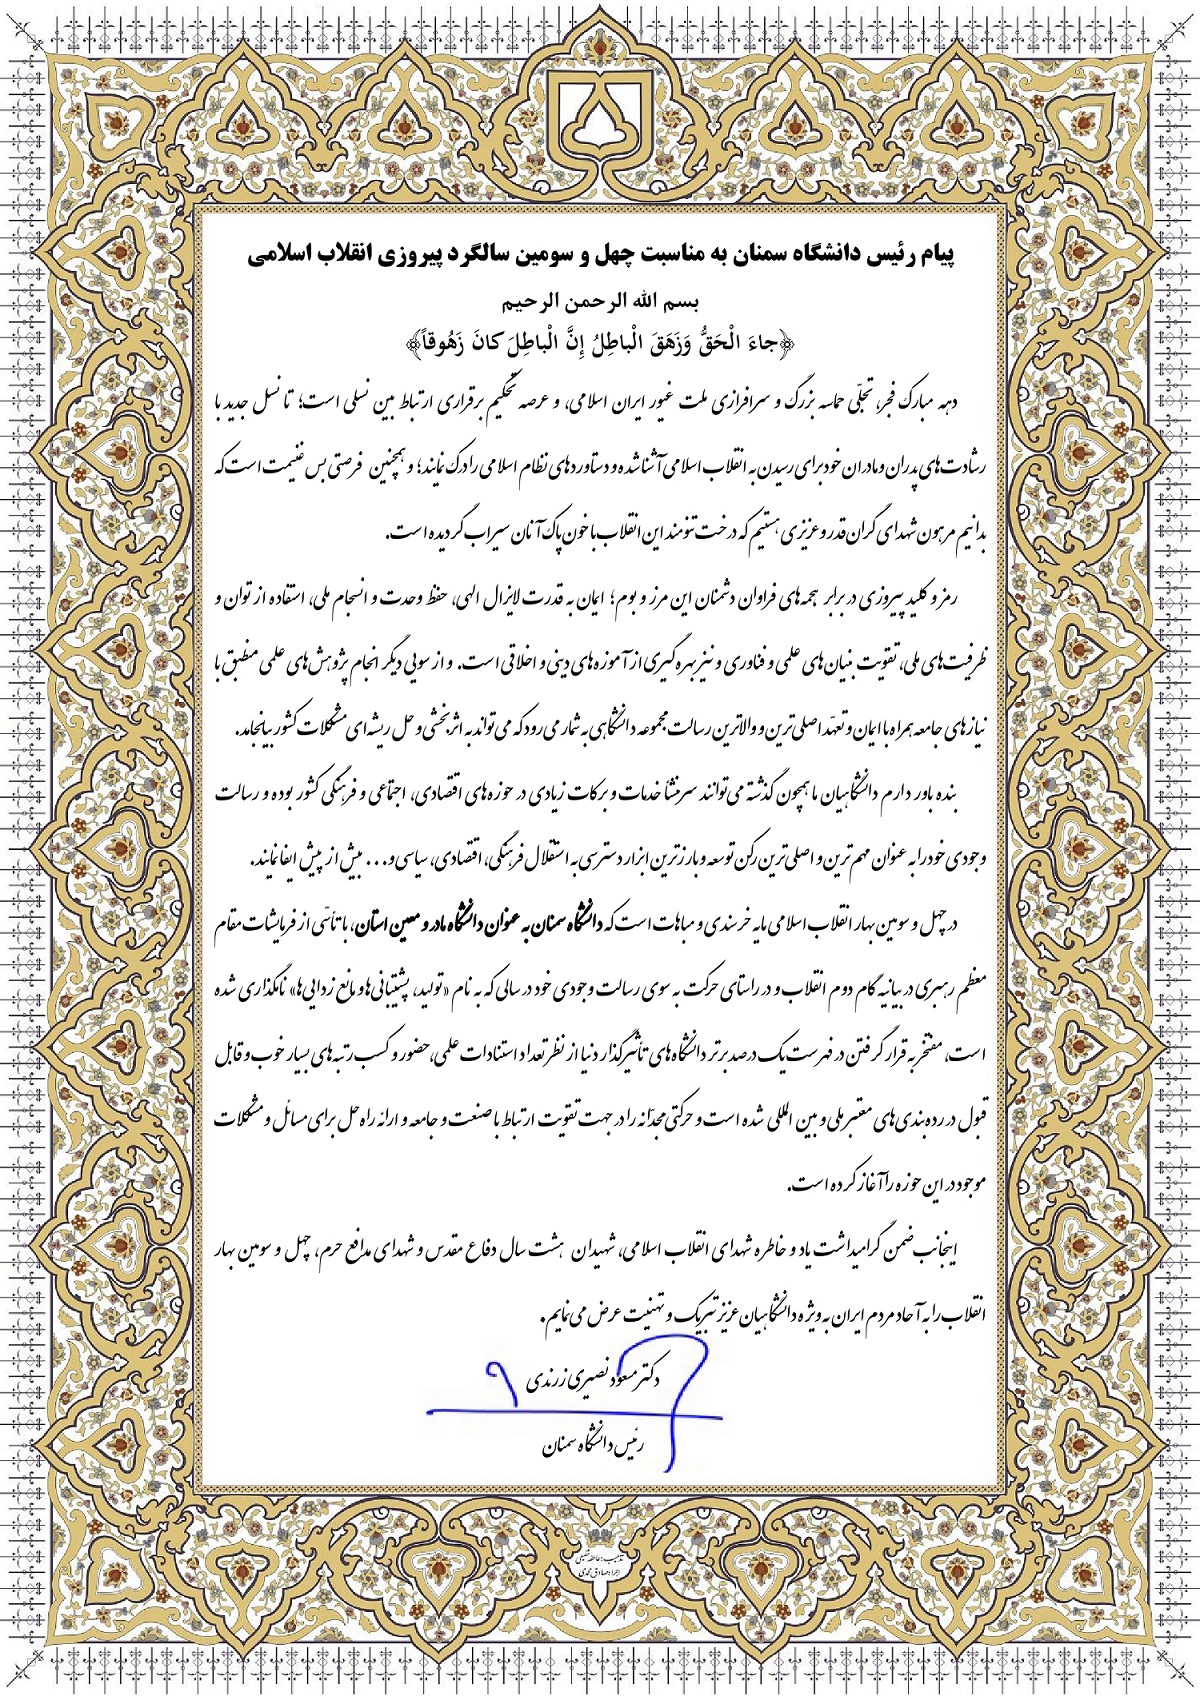 پیام رئیس دانشگاه سمنان به مناسبت چهل و سومین سالگرد پیروزی انقلاب اسلامی
بسم الله الرحمن الرحیم
﴿جاءَ الْحَقُّ وَزَهَقَ الْباطِلُ إِنَّ الْباطِلَ كانَ زَهُوقاً﴾
دهه مبارک فجر، تجلّی حماسه بزرگ و سرافرازی ملت غیور ایران اسلامی، و عرصه تحکیم برقراری ارتباط بین نسلی است؛ تا نسل جدید با
رشادت‌های پدران و مادران خود برای رسیدن به انقلاب اسلامی آشنا شده و دستاوردهای نظام اسلامی را درک نمایند؛ و همچنین فرصتی بس غنیمت است که
بدانیم مرهون شهدای گران قدر و عزیزی هستیم که درخت تنومند این انقلاب با خون پاک آنان سیراب گردیده است.
رمز و کلید پیروزی در برابر هجمه‌های فراوان دشمنان این مرز و بوم؛ ایمان به قدرت لایزال الهی، حفظ وحدت و انسجام ملی، استفاده از توان و
ظرفیت‌های ملی، تقویت بنیان‌های علمی و فناوری و نیز بهره‌گیری از آموزه‌های دینی و اخلاقی است. و از سویی دیگر انجام پژوهش‌های علمی منطبق با
نیازهای جامعه همراه با ایمان و تعهّد اصلی‌ترین و والاترین رسالت مجموعه دانشگاهی به شمار می‌رود که می‌تواند به اثربخشی و حل ریشه‌ای مشکلات کشور بیانجامد.
بنده باور دارم دانشگاهیان ما همچون گذشته می‌توانند سرمنشأ خدمات و برکات زیادی در حوزه‌های اقتصادی، اجتماعی و فرهنگی کشور بوده و رسالت
وجودی خود را به عنوان مهم‌ترین و اصلی‌ترین رکن توسعه و بارزترین ابزار دسترسی به استقلال فرهنگی، اقتصادی، سیاسی و... بیش از پیش ایفا نمایند.
در چهل و سومین بهار انقلاب اسلامی مایه خرسندی و مباهات است که دانشگاه سمنان به عنوان دانشگاه مادر و معین استان، با تأسّی از فرمایشات مقام
معظم رهبری در بیانیه گام دوم انقلاب و در راستای حرکت به سوی رسالت وجودی خود در سالی که به نام «تولید، پشتیبانی‌ها و مانع زدایی‌ها» نامگذاری شده
است، مفتخر به قرار گرفتن در فهرست یک درصد برتر دانشگاه‌های تأثیرگذار دنیا از نظر تعداد استنادات علمی، حضور و کسب رتبه‌های بسیار خوب و قابل
قبول در رده‌بندی‌های معتبر ملی و بین المللی شده است و حرکتی مجدّانه را در جهت تقویت ارتباط با صنعت و جامعه و ارائه راه حل برای مسائل و مشکلات
موجود در این حوزه را آغاز کرده است.
اینجانب ضمن گرامیداشت یاد و خاطره شهدای انقلاب اسلامی، شهیدان هشت سال دفاع مقدس و شهدای مدافع حرم، چهل و سومین بهار
انقلاب را به آحاد مردم ایران به ویژه دانشگاهیان عزیز تبریک و تهنیت عرض می‌نمایم.
دکتر مسعود نصیری زرندی
رئیس دانشگاه سمنان